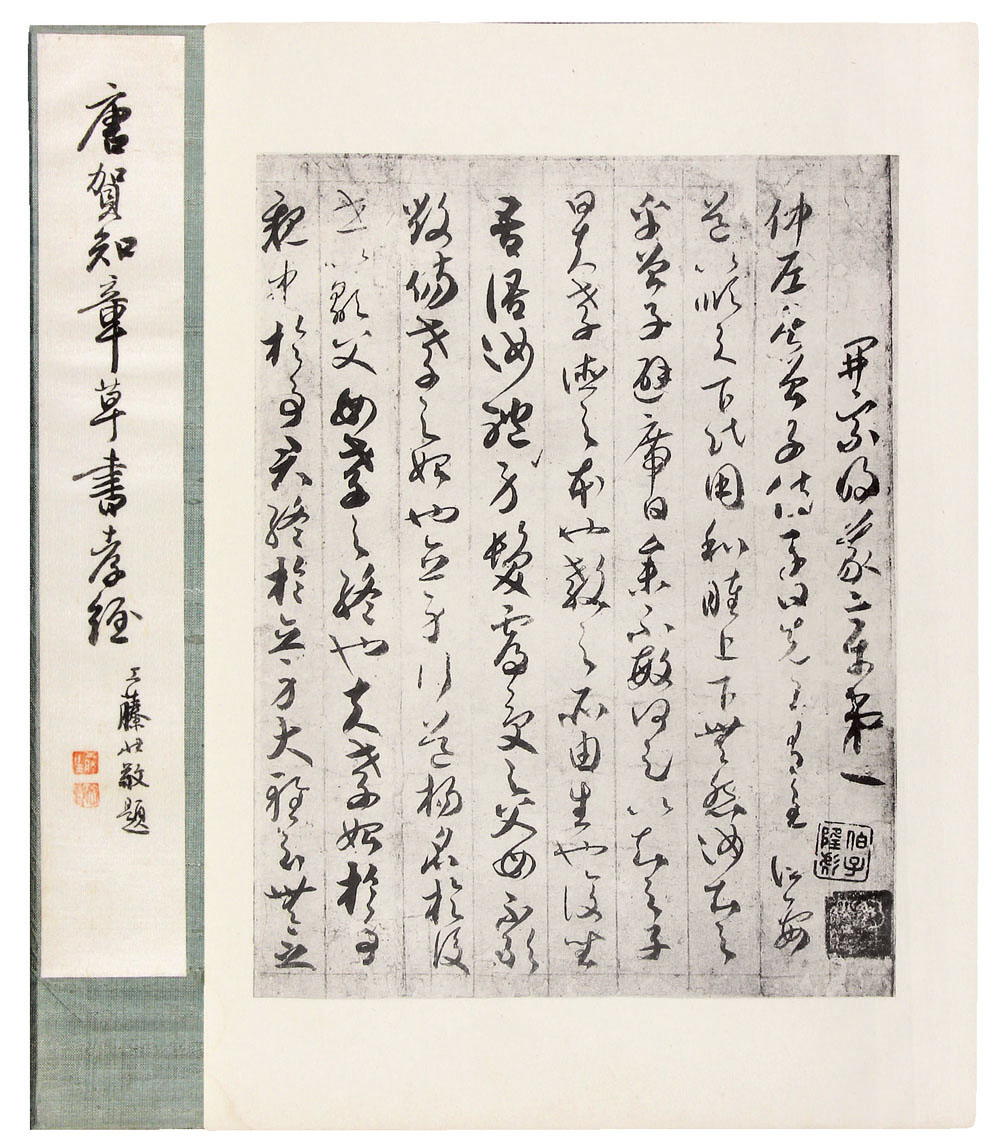 唐賀知章草書孝經
工藤敬題
開宗明義章第一
仲尼居曾子侍子曰先王有至德要
道以順天下民用和睦上下無怨汝知之
乎曾子避席曰參不敏何足以知之子
曰夫孝德之本也教之所由生也復坐
吾語汝體身髮膚受之父母不敢
毀傷孝之始也立身行道楊名於後
世以顯父母孝之終也夫孝始於事
親中於事君終於立身大雅云無